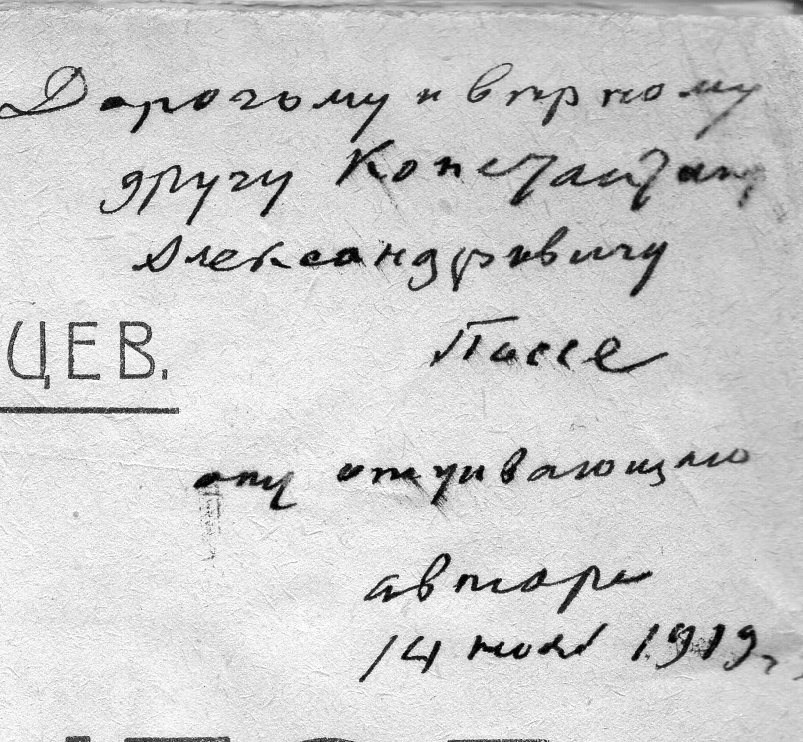 Дорогому и вѣрному
другу Константину
Александровичу
ЦЕВ. Поссе
отъ отживающаго
автора
14 1919 г.